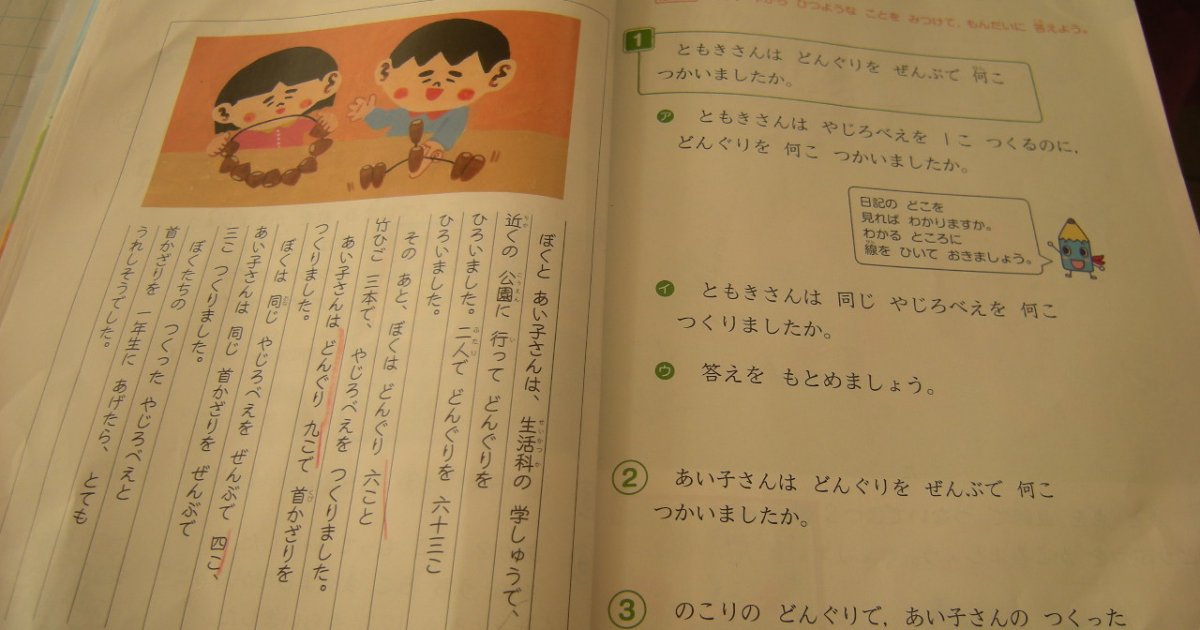 ぼくと あい子さんは、生活科の 学しゅうで、
近くの 公園に 行って どんぐりを
ひろいました。二人で どんぐりを 六十三こ
ひろいました。
その あと、ぼくは どんぐり 六こと
竹ひご 三本で、やじろべえを つくりました。
あい子さんは どんぐり 九こで 首かざりを
つくりました。
ぼくは 同じ やじろべえを ぜんぶで 四こ、
あい子さんは 同じ 首かざりを ぜんぶで
三こ つくりました。
ぼくたちの つくった やじろべえと
首かざりを 一年生に あげたら、とても
うれしそうでした。
ひつような ことを みつけて、もんだいに 答えよう。
1 ともきさんは どんぐりを ぜんぶで 何こ
つかいましたか。
ア ともきさんは やじろべえを 1こ つくるのに、
どんぐりを 何こ つかいましたか。
日記の どこを
見れば わかりますか。
わかる ところに
線を ひいて おきましょう。
イ ともきさんは 同じ やじろべえを 何こ
つくりましたか。
ウ 答えを もとめましょう。
2 あい子さんは どんぐりを ぜんぶで 何こ
つかいましたか。
3 のこりの どんぐりで、あい子さんの つくった